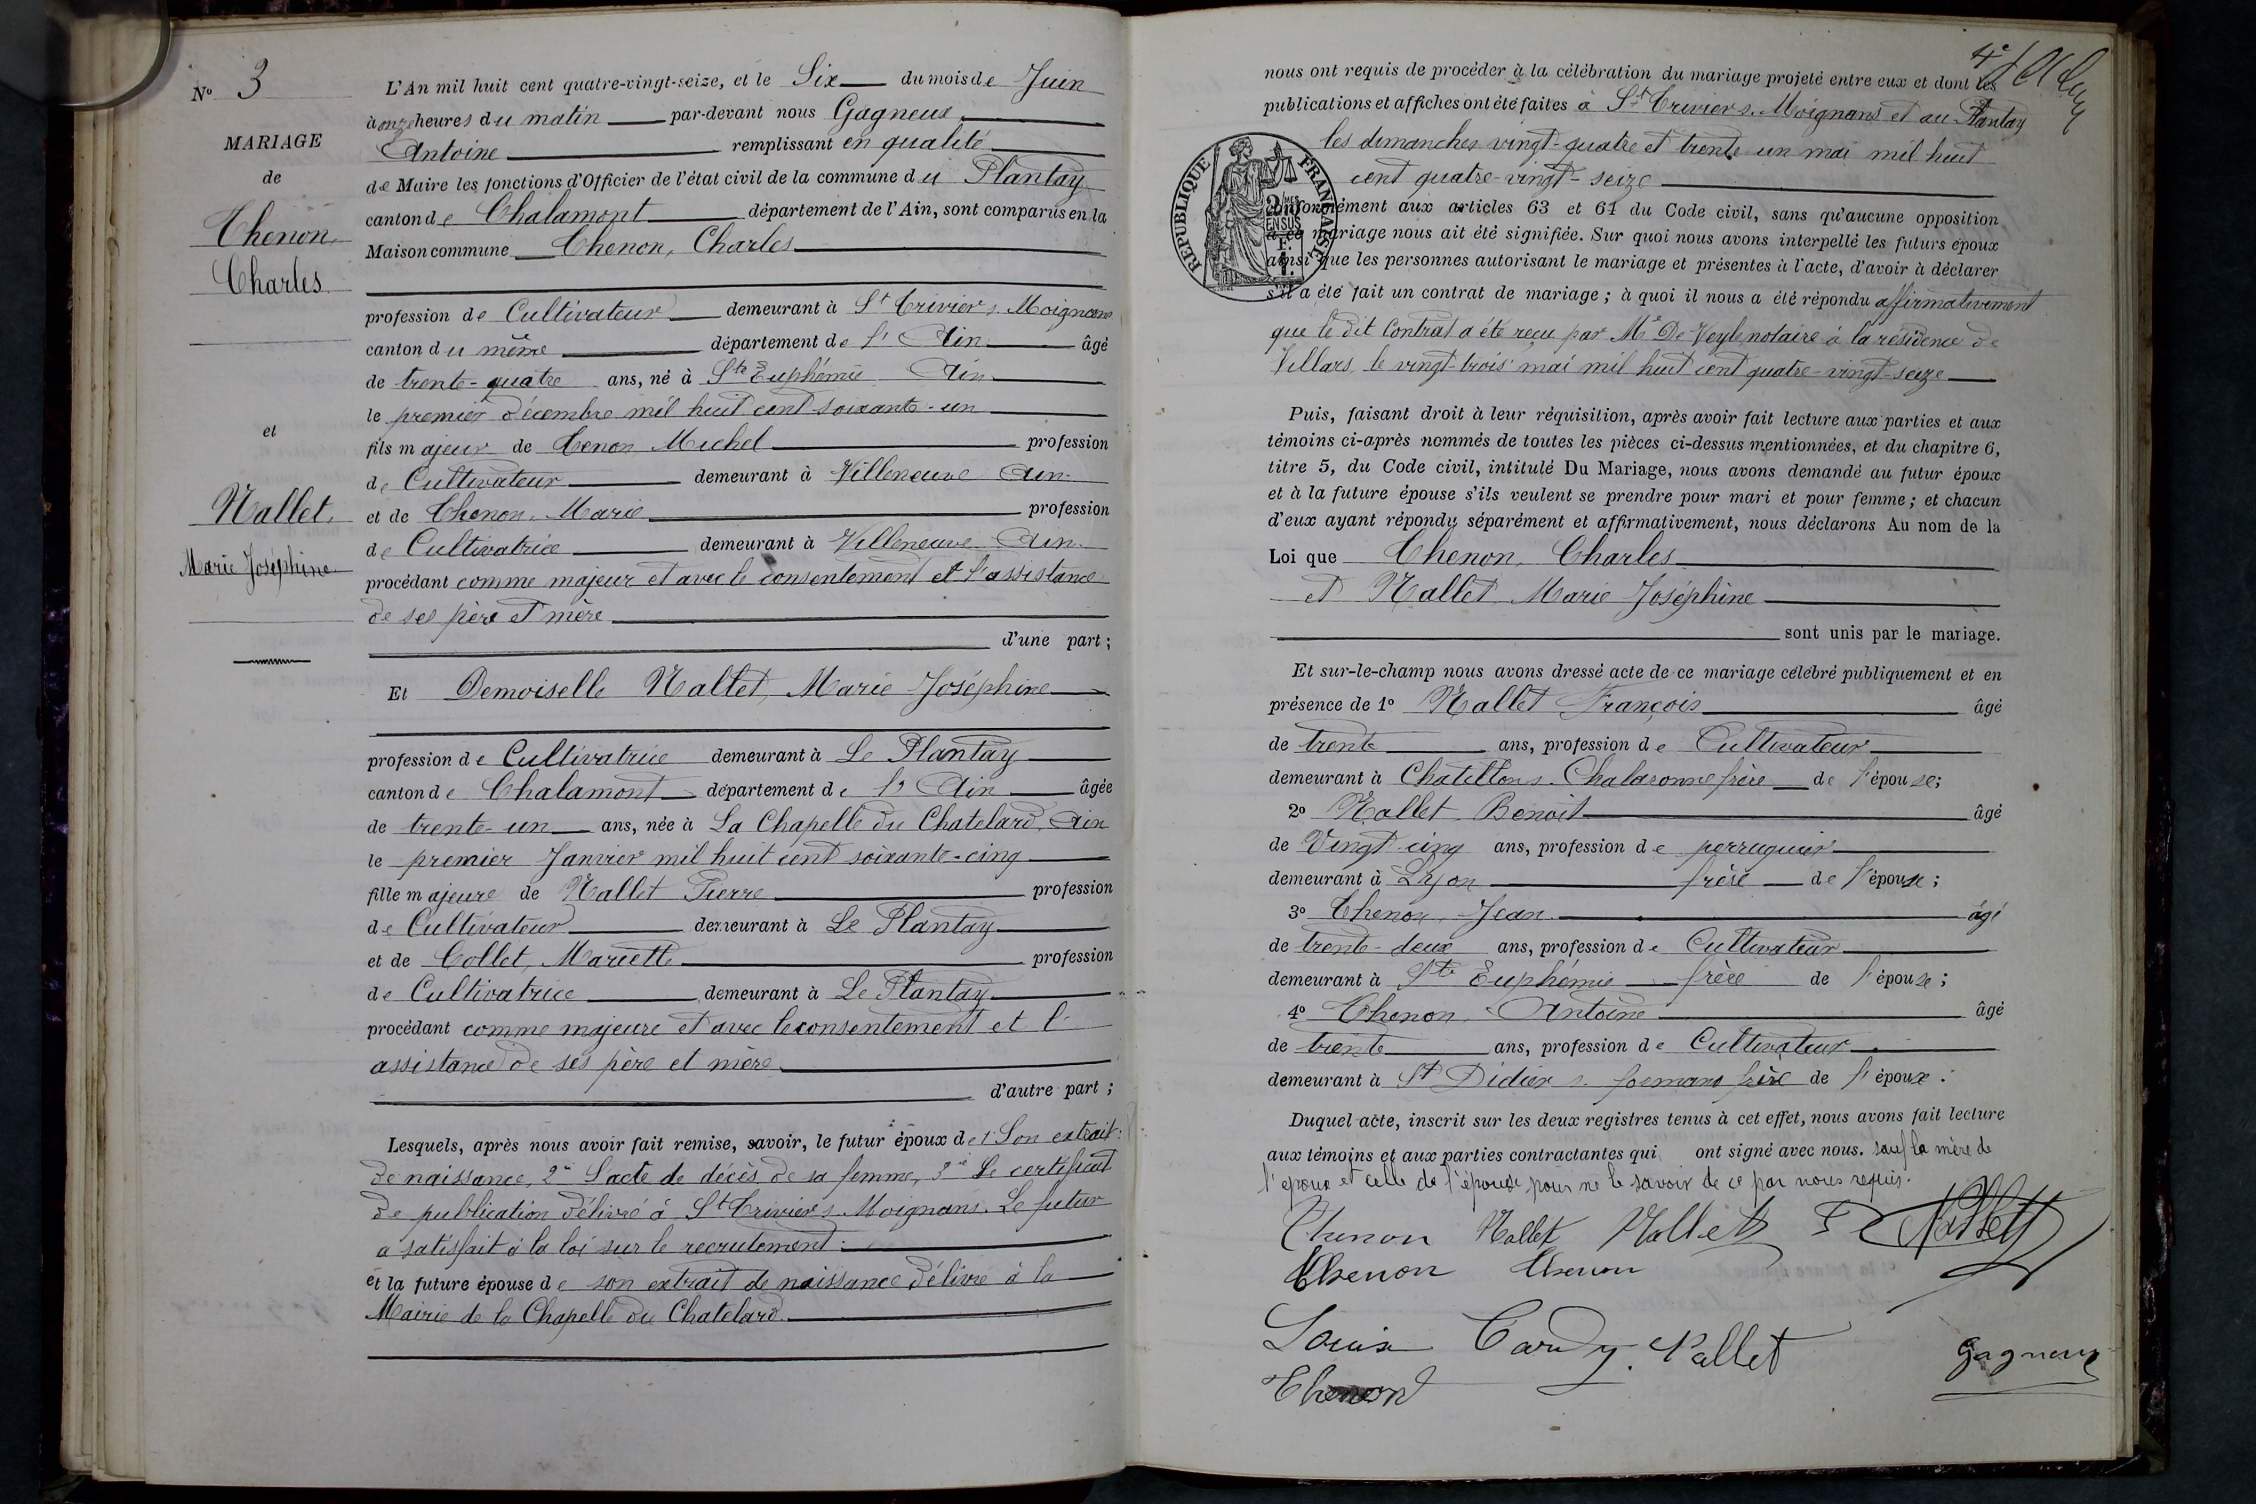 N° 3
MARIAGE
de
Thenon,
Charles
et
Nallet,
Marie Joséphine
L'An mil huit cent quatre-vingt-seize, et le Six du mois de Juin
à onze heures du matin par-devant nous Gagneux,
Antoine remplissant en qualité
de Maire les fonctions d'Officier de l'état civil de la commune du Plantay
canton de Chalamont département de l'Ain, sont comparus en la
Maison commune Thenon, Charles
profession de Cultivateur demeurant à St Trivier s. Moignans
canton du même département de l'Ain âgé
de trente-quatre ans, né à Ste Euphémie Ain
le premier décembre mil huit cent soixante-un
fils majeur de Tenon Michel profession
de Cultivateur demeurant à Villeneuve Ain
et de Thenon, Marie profession
de Cultivatrice demeurant à Villeneuve Ain
procédant comme majeur et avec le consentement et l'assistance
de ses père et mère
d'une part;
Et Demoiselle Nallet, Marie Joséphine
profession de Cultivatrice demeurant à Le Plantay
canton de Chalamont département de l'Ain âgée
de trente-un ans, née à La Chapelle du Chatelard, Ain
le premier Janvier mil huit cent soixante-cinq
fille majeure de Nallet Pierre profession
de Cultivateur demeurant à Le Plantay
et de Collet, Mariette profession
de Cultivatrice demeurant à Le Plantay
procédant comme majeure et avec le consentement et l'
assistance de ses père et mère
d'autre part;
Lesquels, après nous avoir fait remise, savoir, le futur époux de 1° Son extrait
de naissance, 2° L'acte de décès de sa femme, 3° Le certificat
de publication délivré à St Trivier s. Moignans. Le futur
a satisfait à la loi sur le recrutement.
et la future épouse de son extrait de naissance délivré à la
Mairie de la Chapelle du Chatelard.
4e
nous ont requis de procéder à la célébration du mariage projeté entre eux et dont les
publications et affiches ont été faites à St Trivier s. Moignans et au Plantay
les dimanches vingt-quatre et trente un mai mil huit
cent quatre-vingt-seize
RÉPUBLIQUE FRANÇAISE
conformément aux articles 63 et 64 du Code civil, sans qu'aucune opposition
à ce mariage nous ait été signifiée. Sur quoi nous avons interpellé les futurs époux
ainsi que les personnes autorisant le mariage et présentes à l'acte, d'avoir à déclarer
s'il a été fait un contrat de mariage; à quoi il nous a été répondu affirmativement
que le dit Contrat a été reçu par Me De Veyle notaire à la résidence de
Villars le vingt-trois mai mil huit cent quatre-vingt-seize
Puis, faisant droit à leur réquisition, après avoir fait lecture aux parties et aux
témoins ci-après nommés de toutes les pièces ci-dessus mentionnées, et du chapitre 6,
titre 5, du Code civil, intitulé Du Mariage, nous avons demandé au futur époux
et à la future épouse s'ils veulent se prendre pour mari et pour femme; et chacun
d'eux ayant répondu séparément et affirmativement, nous déclarons Au nom de la
Loi que Thenon, Charles
et Nallet Marie Joséphine
sont unis par le mariage.
Et sur-le-champ nous avons dressé acte de ce mariage célébré publiquement et en
présence de 1° Nallet François âgé
de trente ans, profession de Cultivateur
demeurant à Chatillon s. Chalaronne frère de l'épouse;
2° Nallet Benoit âgé
de Vingt cinq ans, profession de perruquier
demeurant à Lyon frère de l'épouse;
3° Thenon, Jean âgé
de trente-deux ans, profession de Cultivateur
demeurant à Ste Euphémie frère de l'épouse;
4° Thenon, Antoine âgé
de trente ans, profession de Cultivateur
demeurant à St Didier s. formans frère de l'époux.
Duquel acte, inscrit sur les deux registres tenus à cet effet, nous avons fait lecture
aux témoins et aux parties contractantes qui ont signé avec nous. sauf la mère de
l'époux et celle de l'épouse pour ne le savoir de ce par nous requis.
Thenon Nallet Nallet Nallet
Thenon Thenon
Louis Cardy. Nallet Gagneux
Thenon